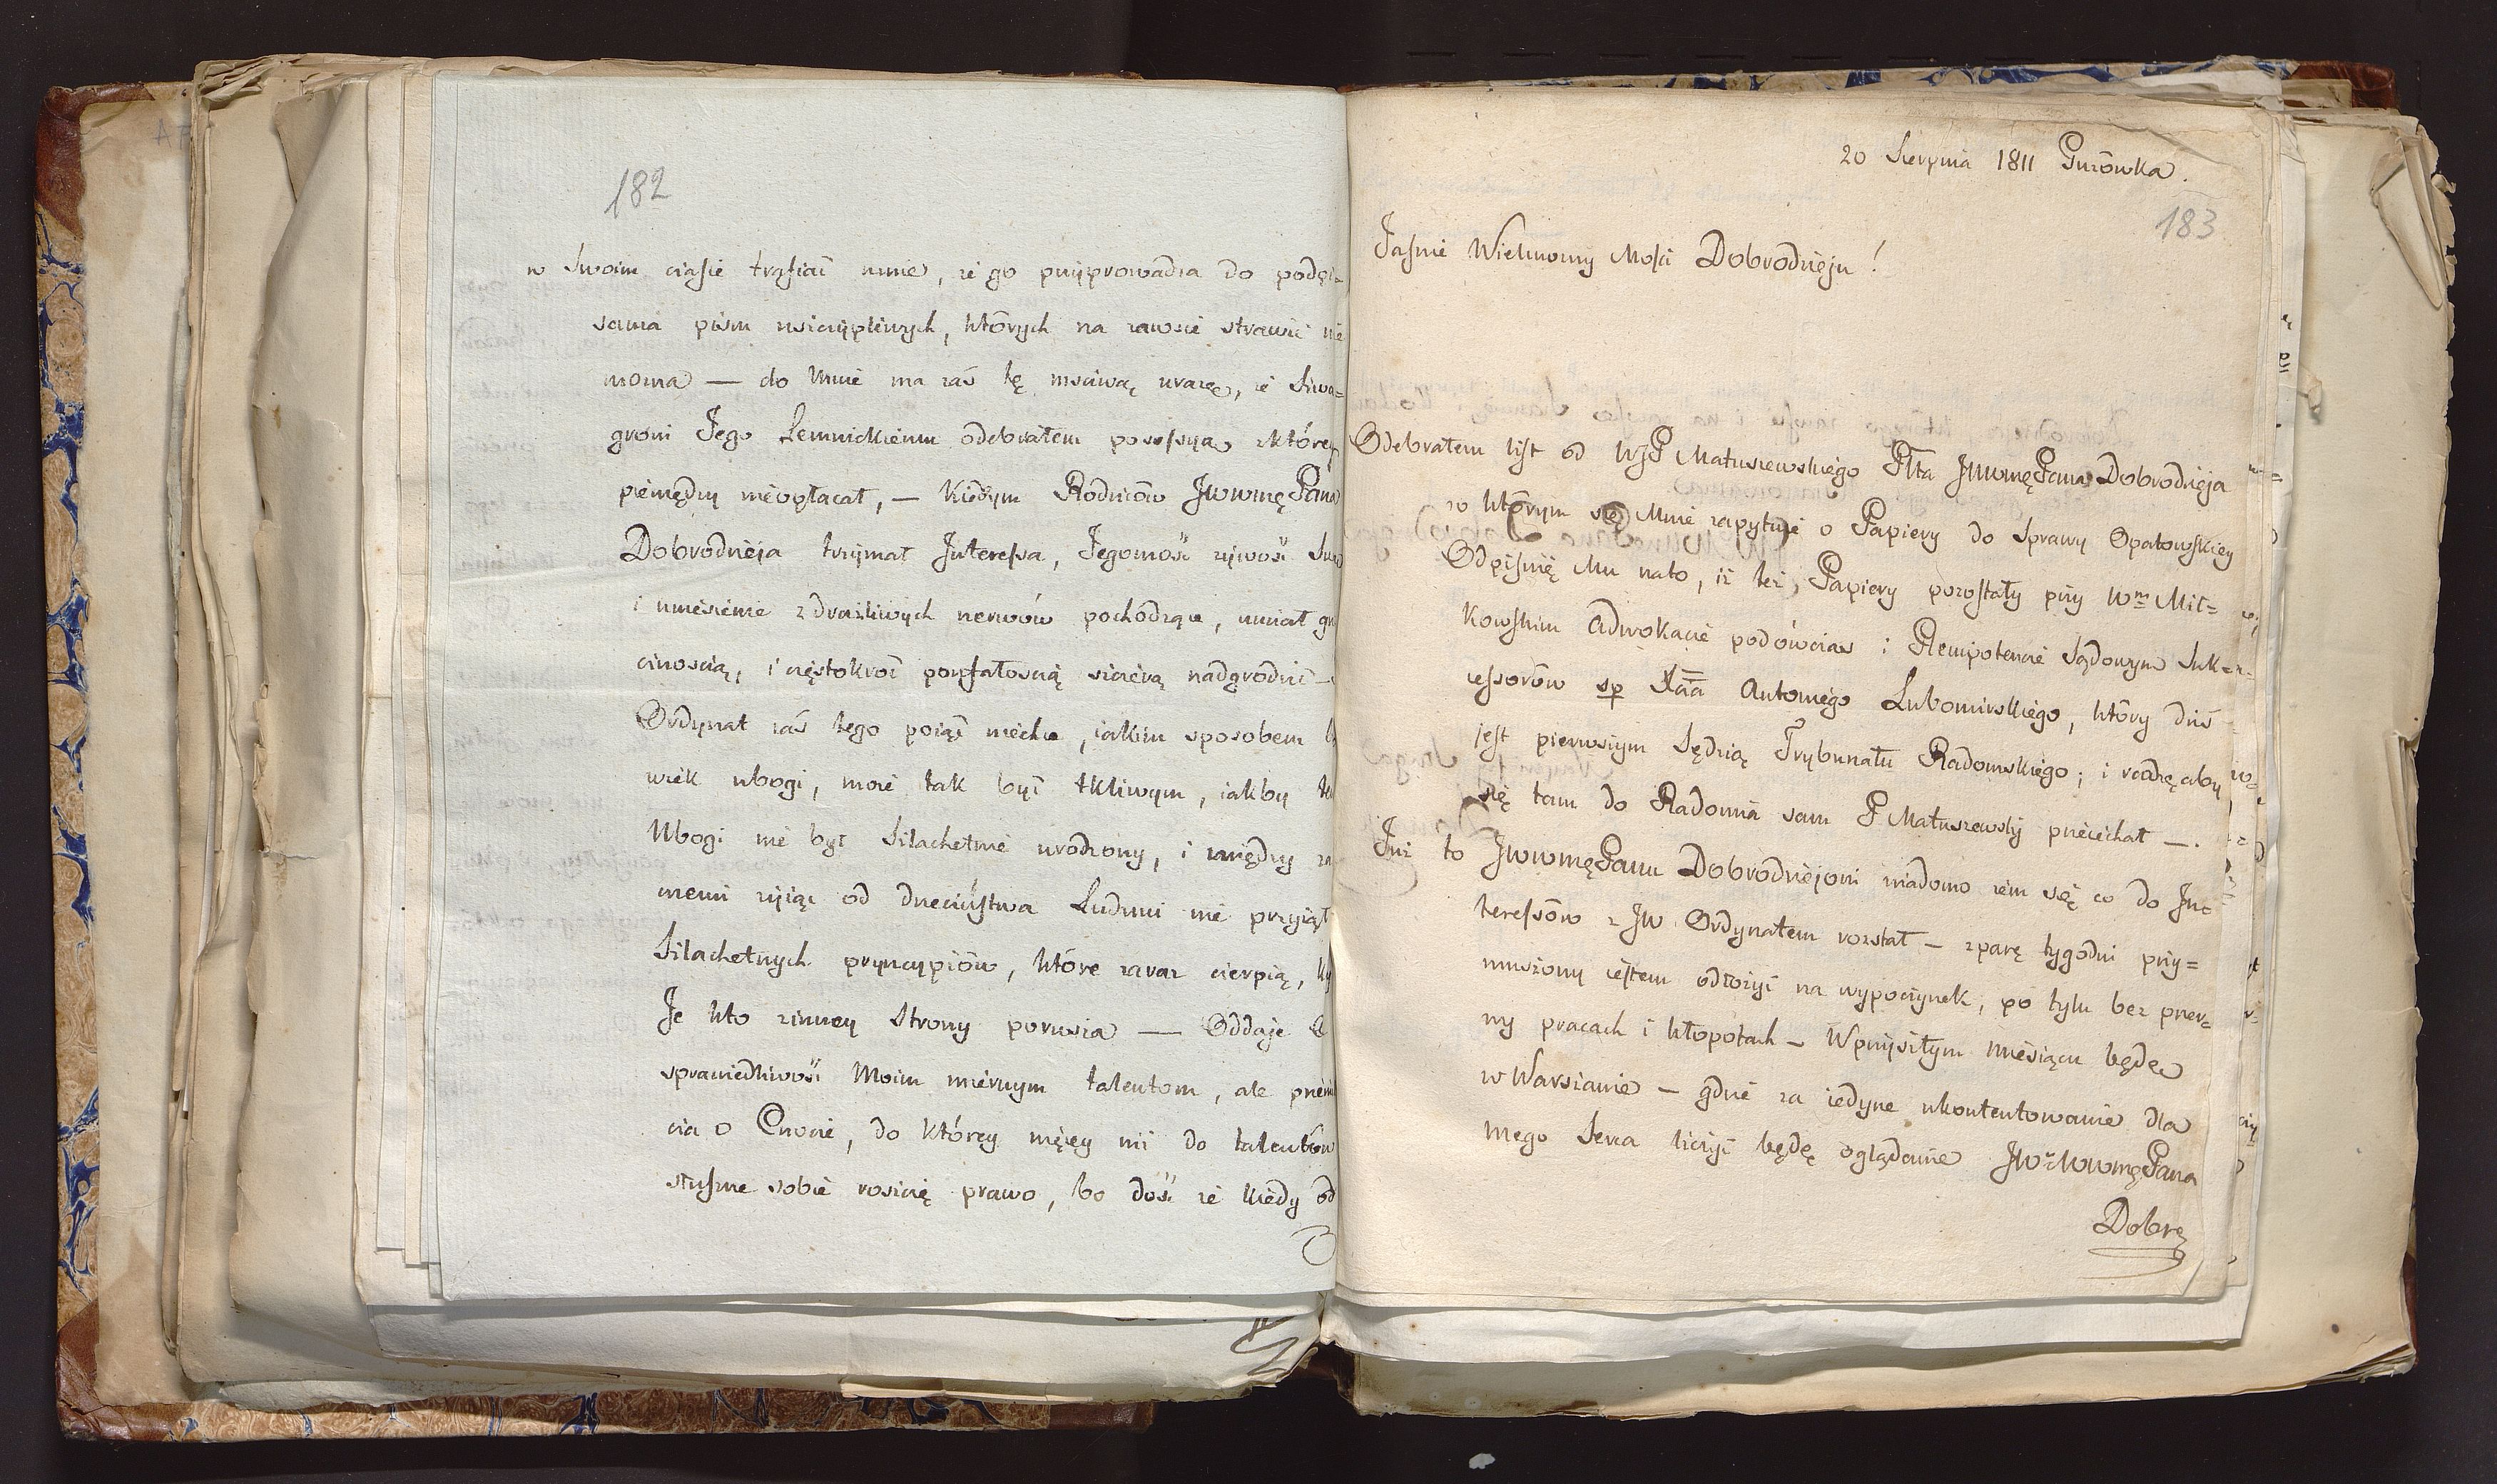 182
w Swoim czasie trząsiać mnie, że go przyprowadza do podpi-
sania pism uszczypliwych, których na zawsze strawić nie
można — do Mnie ma zaś tę mściwą urazę, iż Szwa=
growi Jego Lemnickiemu odebrałem possessyą z którey
pieniędzy nieopłacał, — Kiedym Rodziców JWWMęPana
Dobrodzieja trzymał Interessa, Jegomość żywość Swą
i uniesienie z drażliwych nerwów pochodzące, umiał
cznoscią, i częstokroć poufałoscią szczerą nadgrodzić —
Ordynat zaś tego poiąć niechce, iakim sposobem
wiek ubogi, może tak być tkliwym, iakby
Ubogi nie był Szlachetnie urodzony, i między
memi żyiąc od dzieciństwa Ludzmi nie przyiął
Szlachetnych pryncypiów, które zaraz cierpią,
Je kto zinney Strony porusza — Oddaje
sprawiedliwość Moim miernym talentom, ale
cia o Cnocie, do którey więcey niż do talentów
słuszne sobie roszczę prawo, bo dość że kiedy od
20 Sierpnia 1811 Gurówka.
183
Jaśnie Wielmożny Mości Dobrodzieju!
Odebrałem list od WJP Matuszewskiego Plta JWWMęPana Dobrodzieja
w którym się Mnie zapytuje o Papiery do Sprawy Opatowskiey
Odpiszię Mu nato, iż też Papiery pozostały przy Wm Mił=
kowskim Adwokacie podówczas i Plenipotencie Sądowym Suk=
cessorów sp Xaa Antoniego Lubomirskiego, który dziś
jest pierwszym Sędzią Trybunału Radomskiego; i radzę aby
się tam do Radomia sam P Matuszewsky przeiechał —.
Już to JWWMęPanu Dobrodziejowi wiadomo żem się co do Jn=
teressów z JW Ordynatem rozstał — zparę tygodni przy=
muszony iestem odłożyć na wypoczynek, po tylu bez przer=
wy pracach i kłopotach — Wprzyszłym miesiącu będę
w Warszawie — gdzie za iedyne ukontentowanie dla
mego Serca liczyć będę oglądanie JWo WWMęPana
Dobrę